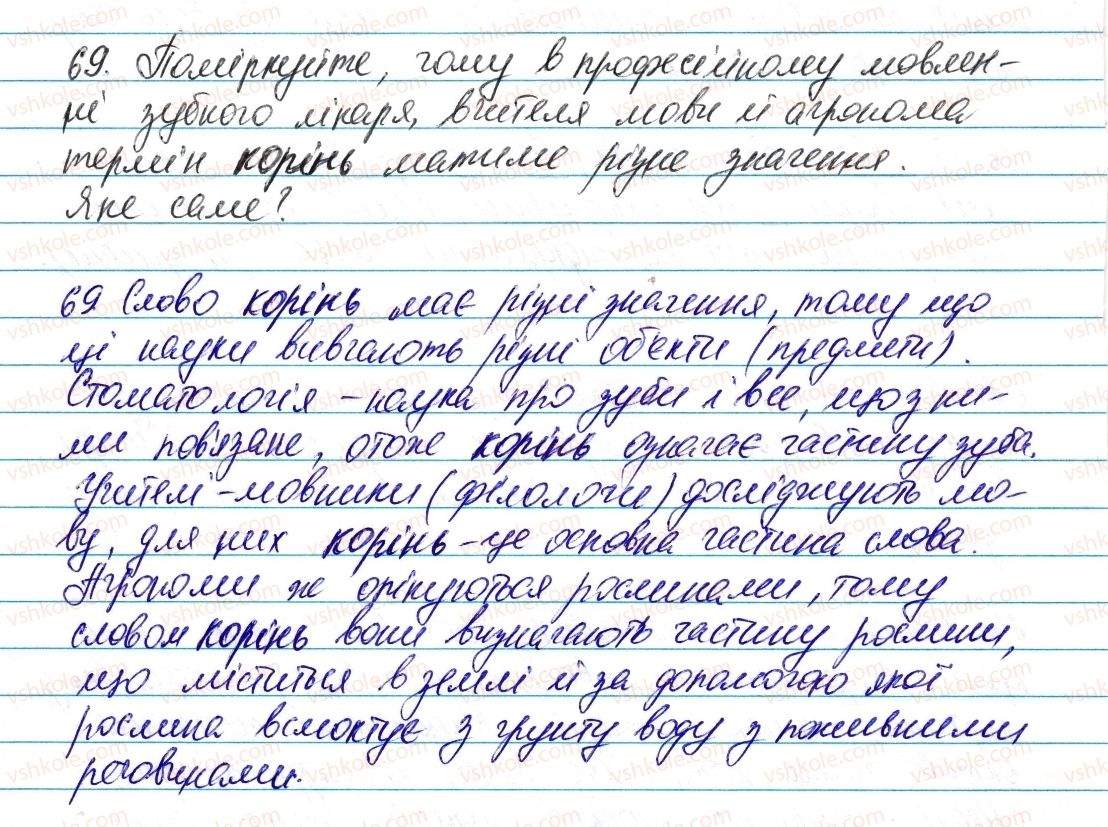 69. Поміркуйте, чому в професійному мовлен-
ні зубного лікаря, вчителя мови й агронома
термін корінь матиме різне значення.
Яке саме?
69 Слово корінь має різні значення, тому що
ці науки вивчають різні об'єкти (предмети).
Стоматологія - наука про зуби і все, що з ни-
ми пов'язане, отже корінь означає частину зуба.
Учителі - мовники (філологи) досліджують мо-
ву, для них корінь - це основна частина слова.
Агрономи ж опікуються рослинами, тому
словом корінь вони визначають частину рослини,
що міститься в землі й за допомогою якої
рослина всмоктує з грунту воду з поживними
речовинами.